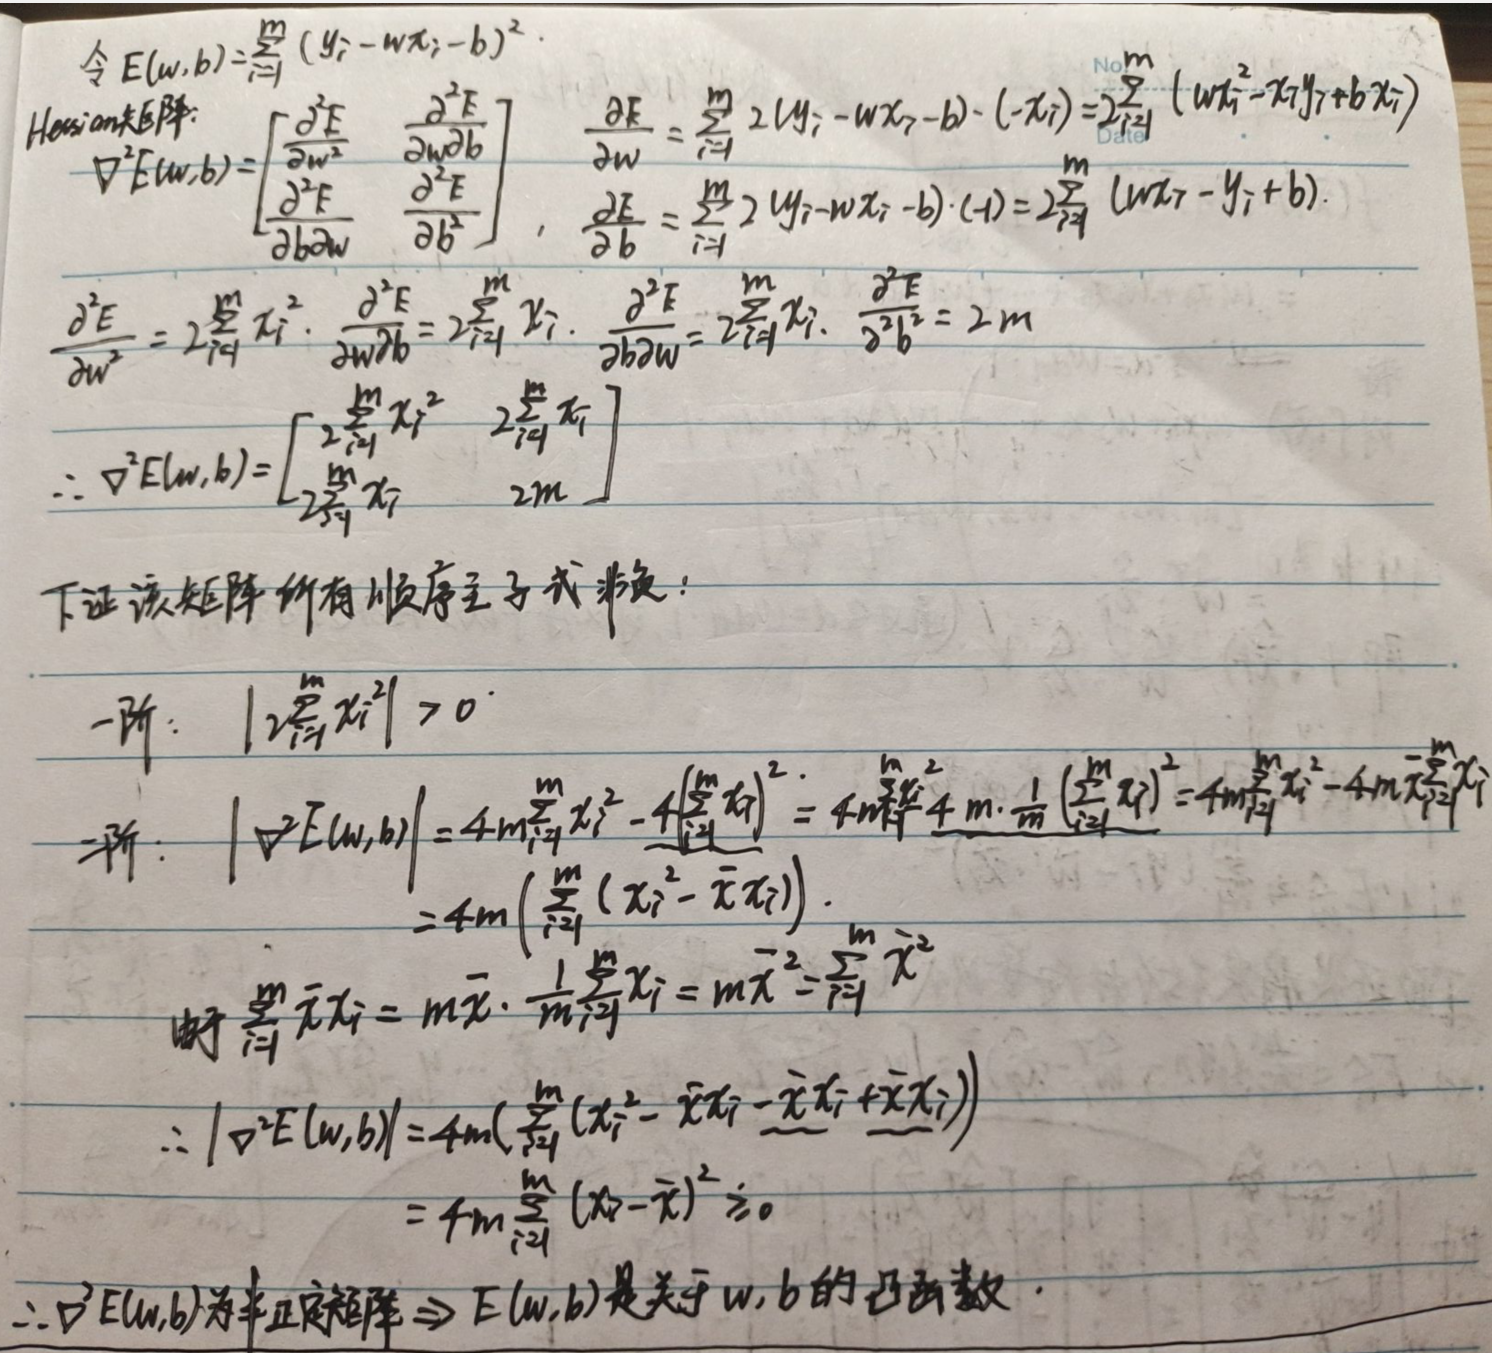 令 E(w,b)=∑_{i=1}^{m} (y_i-wx_i-b)^2.
No.
Date
Hessian矩阵:
∇^2E(w,b)=[∂^2E/∂w^2 ∂^2E/∂w∂b; ∂^2E/∂b∂w ∂^2E/∂b^2], ∂E/∂w=∑_{i=1}^{m} 2(y_i-wx_i-b)·(-x_i)=2∑_{i=1}^{m} (wx_i^2-x_iy_i+bx_i)
∂E/∂b=∑_{i=1}^{m} 2(y_i-wx_i-b)·(-1)=2∑_{i=1}^{m} (wx_i-y_i+b).
∂^2E/∂w^2=2∑_{i=1}^{m} x_i^2. ∂^2E/∂w∂b=2∑_{i=1}^{m} x_i. ∂^2E/∂b∂w=2∑_{i=1}^{m} x_i. ∂^2E/∂^2b^2=2m
∴ ∇^2E(w,b)=[2∑_{i=1}^{m} x_i^2 2∑_{i=1}^{m} x_i; 2∑_{i=1}^{m} x_i 2m]
下证该矩阵所有顺序主子式非负:
一阶: |2∑_{i=1}^{m} x_i^2| > 0.
二阶: |∇^2E(w,b)|=4m∑_{i=1}^{m} x_i^2-4(∑_{i=1}^{m} x_i)^2=4m∑_{i=1}^{m} x_i^2-4·m·1/m(∑_{i=1}^{m} x_i)^2=4m∑_{i=1}^{m} x_i^2-4mx̄∑_{i=1}^{m} x_i
=4m(∑_{i=1}^{m} (x_i^2-x̄x_i)).
由于 ∑_{i=1}^{m} x̄x_i=mx̄·1/m∑_{i=1}^{m} x_i=mx̄^2=∑_{i=1}^{m} x̄^2
∴ |∇^2E(w,b)|=4m(∑_{i=1}^{m} (x_i^2-x̄x_i-x̄x_i+x̄x_i))
=4m∑_{i=1}^{m} (x_i-x̄)^2≥0
∴ ∇^2E(w,b)为半正定矩阵 ⇒ E(w,b)是关于w,b的凸函数.